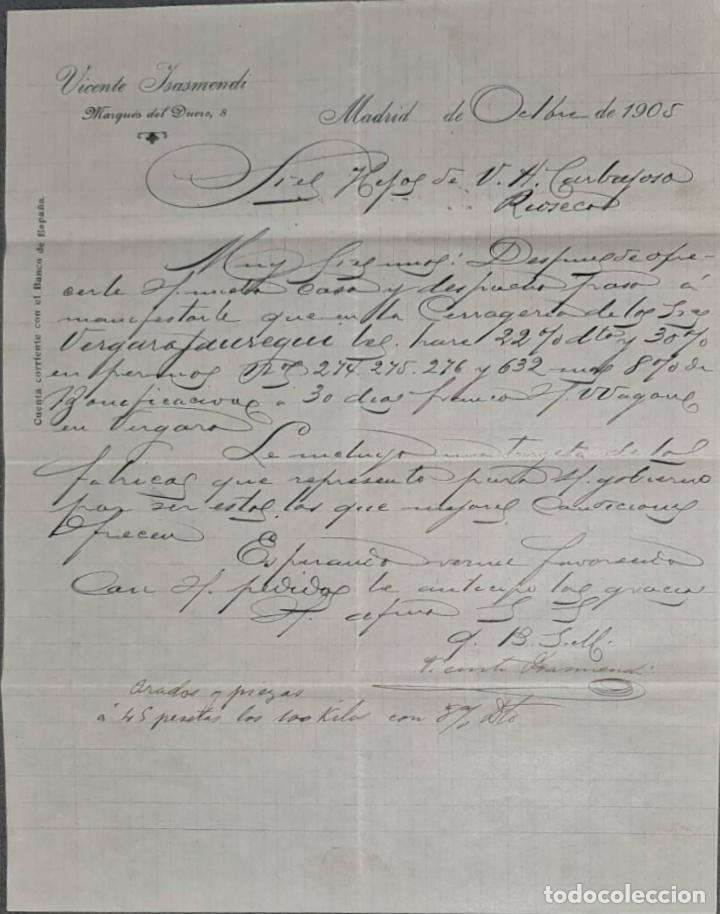 Vicente Isasmendi
Marqués del Duero, 8
Madrid de Octbre de 1905
Sres Hijos de V. H. Carbajosa
Rioseco
Cuenta corriente con el Banco de España.
Muy Sres mios: Despues de ofre-
cerle casa y despacho paso á
manifestarle que en la Cerrageria de los Sres
Vergarajauregui les haré 22% dto y 30%
en pernos Nos 274. 275. 276 y 632 mas 8% de
Bonificacion á 30 dias franco Wagon
en Vergara
Le incluyo una targeta de las
fabricas que represento para gobierno
por ser estas las que mejores condiciones
ofrecen
Esperando verme favorecido
con pedidos le anticipo las gracias
S S
q. B. S. M.
Vicente Isasmendi
arados y piezas
á 45 pesetas los 100 Kilos con Dto
todocoleccion